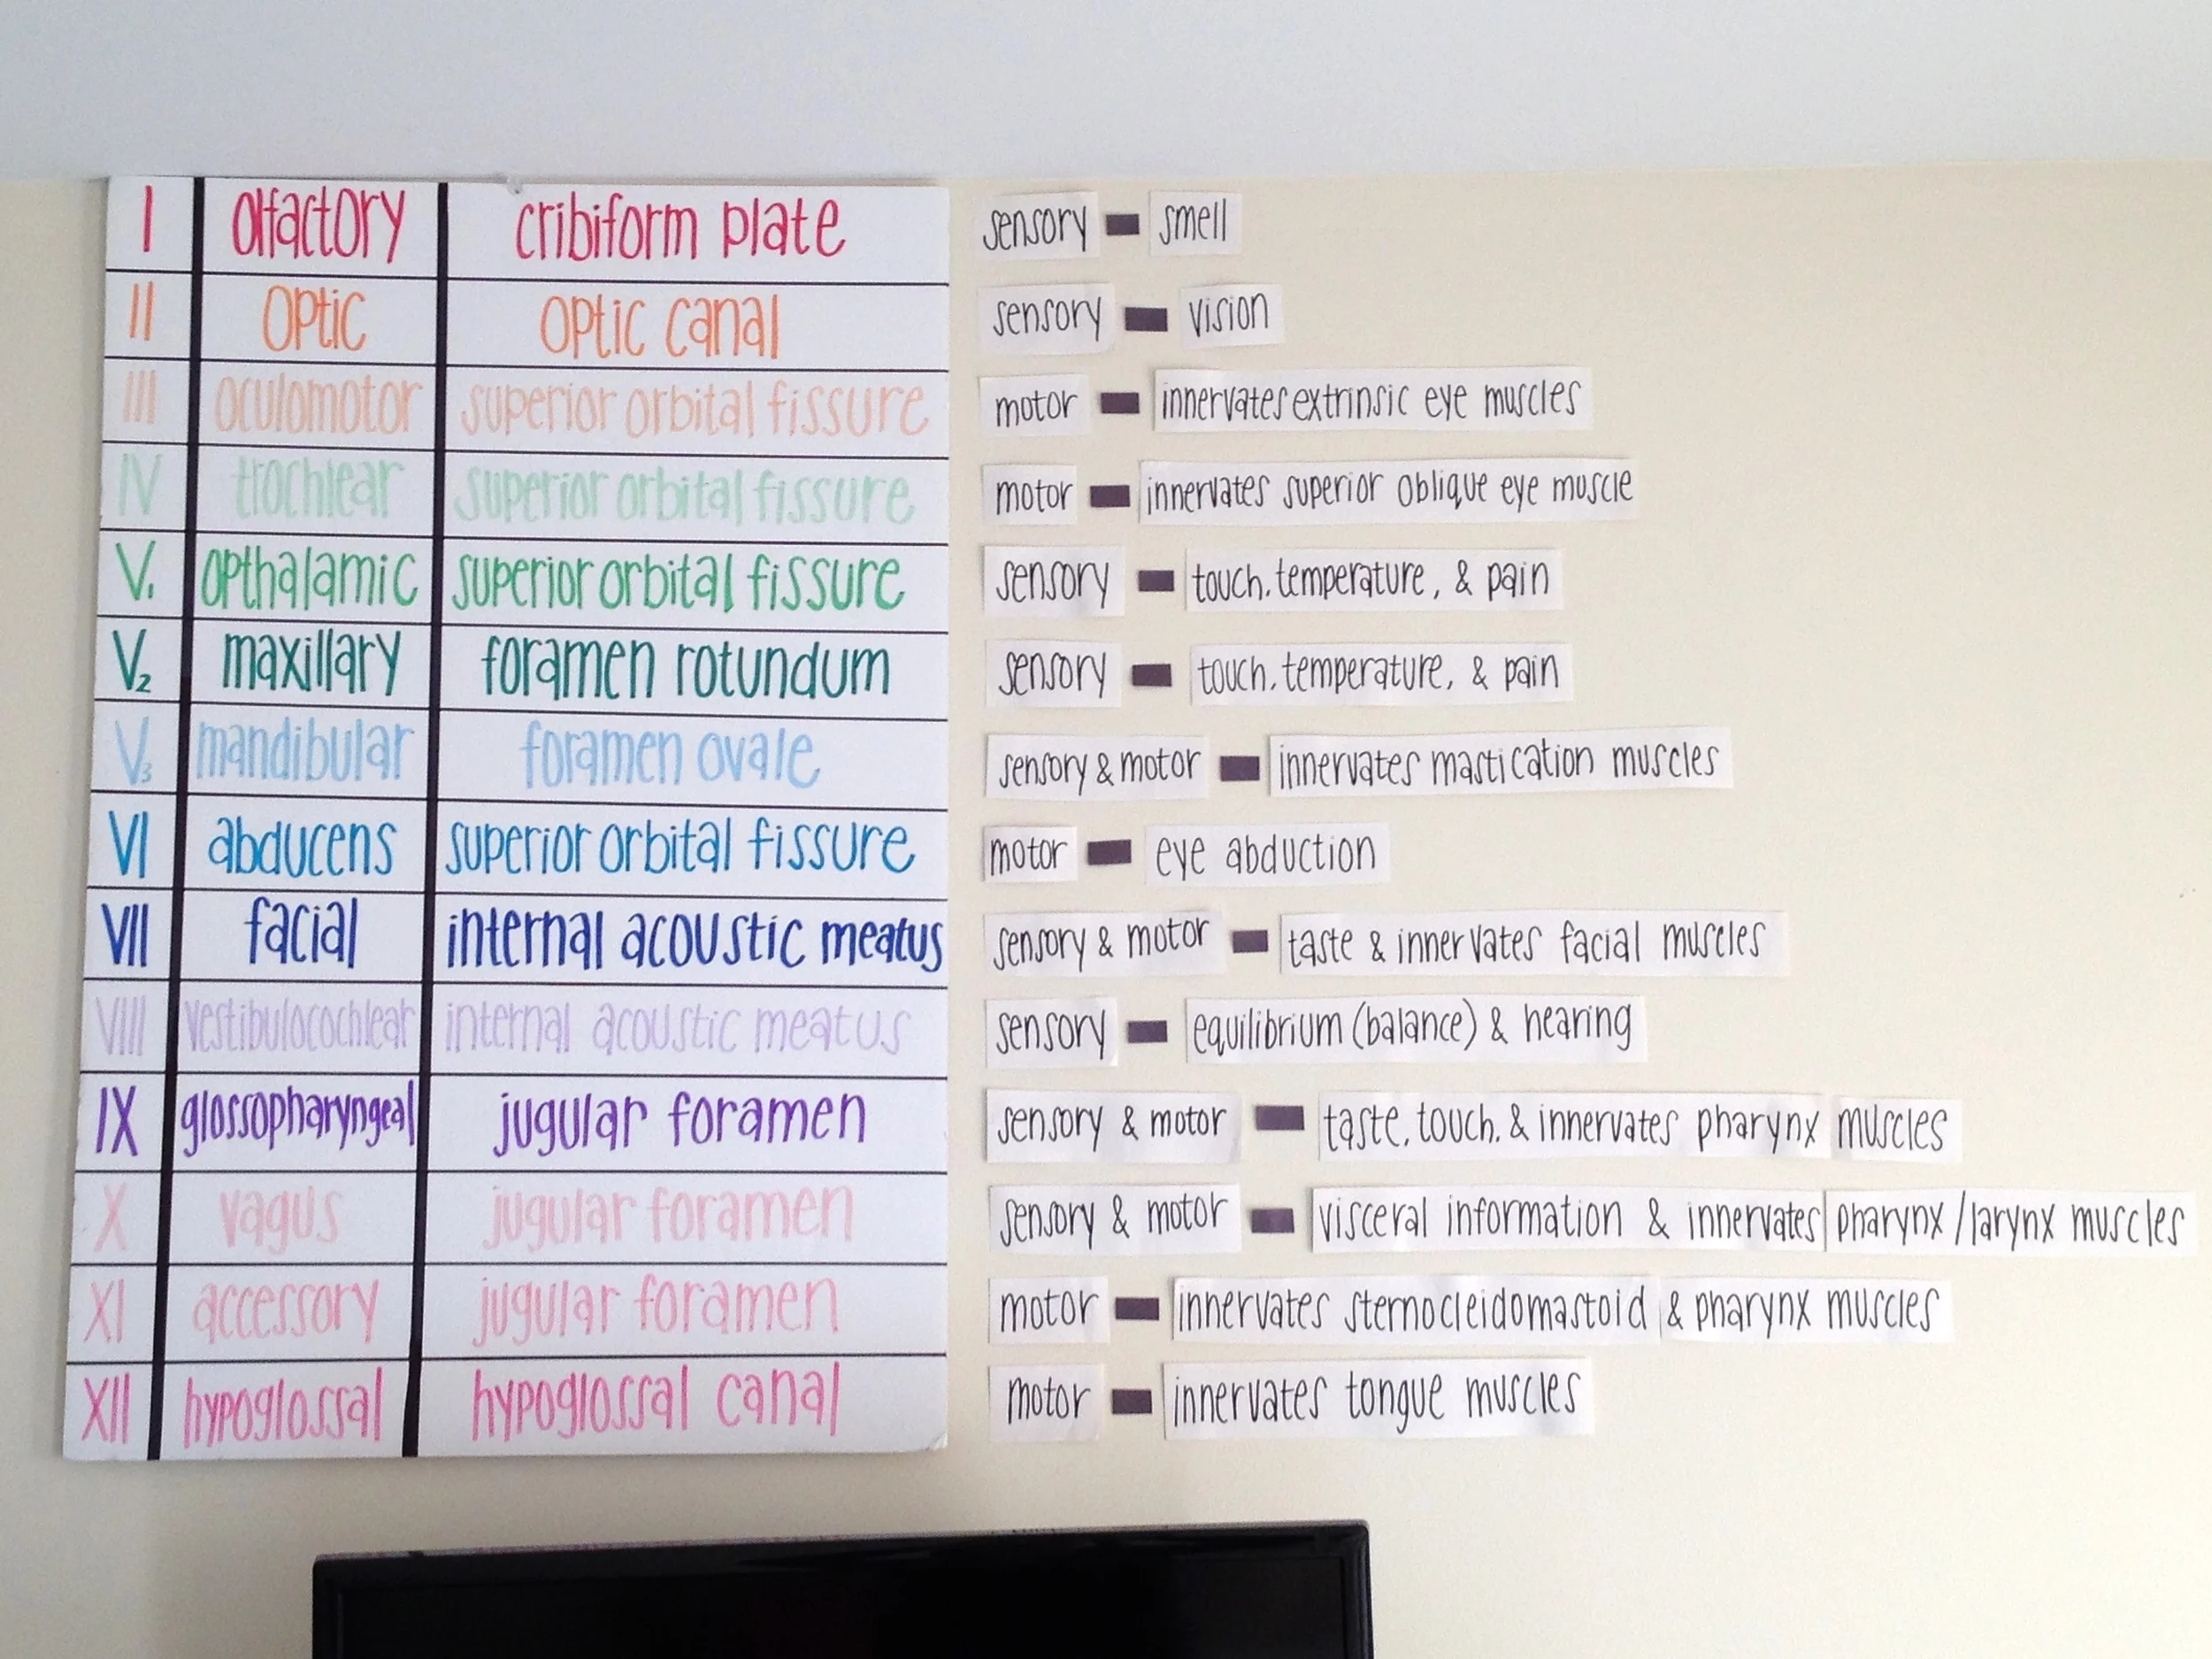 I olfactory cribiform plate sensory - smell
II optic optic canal sensory - vision
III oculomotor superior orbital fissure motor - innervates extrinsic eye muscles
IV trochlear superior orbital fissure motor - innervates superior oblique eye muscle
V1 opthalamic superior orbital fissure sensory - touch, temperature, & pain
V2 maxillary foramen rotundum sensory - touch, temperature, & pain
V3 mandibular foramen ovale sensory & motor - innervates mastication muscles
VI abducens superior orbital fissure motor - eye abduction
VII facial internal acoustic meatus sensory & motor - taste & innervates facial muscles
VIII vestibulocochlear internal acoustic meatus sensory - equilibrium (balance) & hearing
IX glossopharyngeal jugular foramen sensory & motor - taste, touch, & innervates pharynx muscles
X vagus jugular foramen sensory & motor - visceral information & innervates pharynx/larynx muscles
XI accessory jugular foramen motor - innervates sternocleidomastoid & pharynx muscles
XII hypoglossal hypoglossal canal motor - innervates tongue muscles